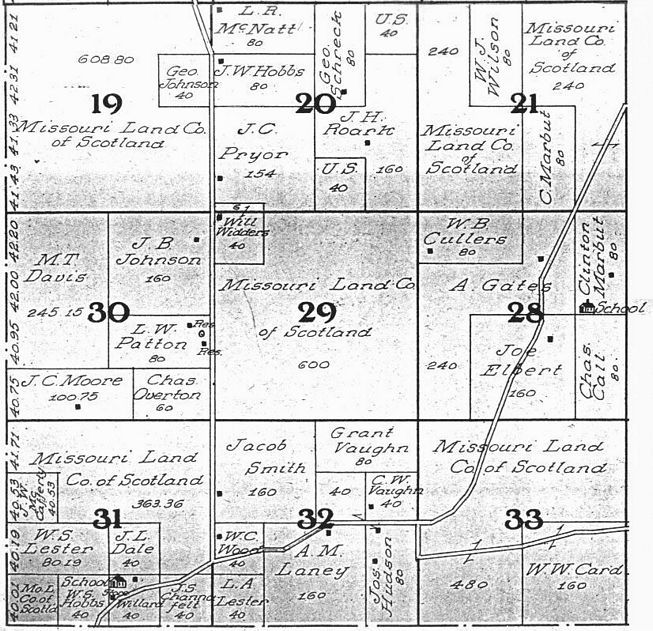 41.21
42.31
41.33
41.43
608.80
Geo.
Johnson
40
19
Missouri Land Co.
of Scotland
L.R.
McNatt
80
J.W. Hobbs
80
Geo.
Schreck
80
U.S.
40
20
J.C.
Pryor
154
J.H.
Roark
160
U.S.
40
240
W.J.
Wilson
80
Missouri
Land Co.
of
Scotland
240
21
Missouri
Land Co.
of
Scotland
C. Marbut
80
42.20
42.00
40.95
40.75
M.T.
Davis
245.15
30
J.B
Johnson
160
L.W.
Patton
80
Res.
Res.
J.C. Moore
100.75
Chas.
Overton
60
6.1
Will
Widders
40
Missouri Land Co
29
of Scotland
600
W.B.
Cullers
80
A Gates
28
240
Joe
Elbert
160
Clinton
Marbut
80
School
Chas.
Call
80
41.71
40.53
40.19
40.01
Missouri Land
Co. of Scotland
363.36
40.53
31
W.S.
Lester
80.19
J.L
Dale
40
Mo.L
Co.of
Scotl'd
School
W.S.
Hobbs
40
Store
Willard
40
J.S.
Channa
felt
40
Jacob
Smith
160
Grant
Vaughn
80
40
C.W.
Vaughn
40
32
W.C.
Wood
40
A.M.
Laney
160
L.A
Lester
40
Jos.
Hudson
80
Missouri Land
Co. of Scotland
33
480
W.W. Card
160